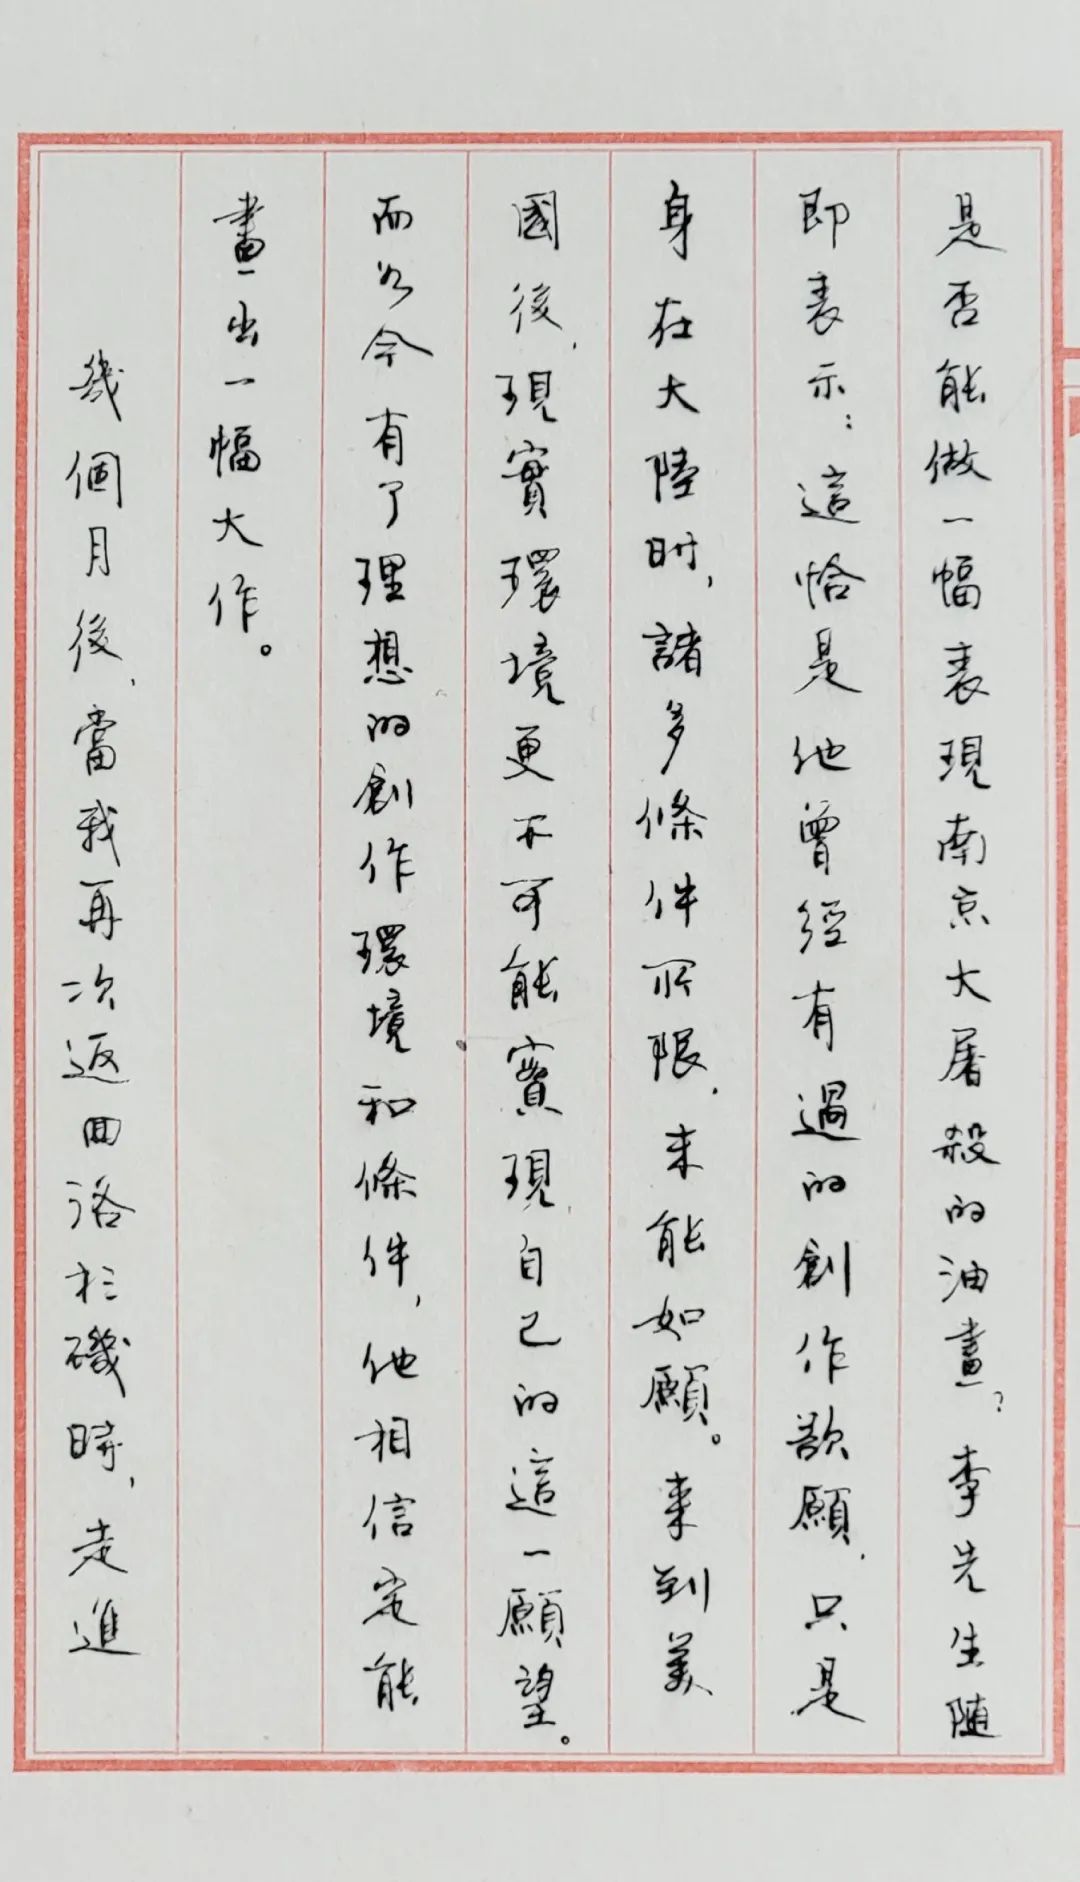 是否能做一幅表現南京大屠殺的油畫？李先生隨
即表示：這恰是他曾經有過的創作歆願，只是
身在大陸時，諸多條件所限，未能如願。來到美
國後，現實環境更不可能實現自己的這一願望。
而如今有了理想的創作環境和條件，他相信定能
畫出一幅大作。
幾個月後，當我再次返回洛杉磯時，走進